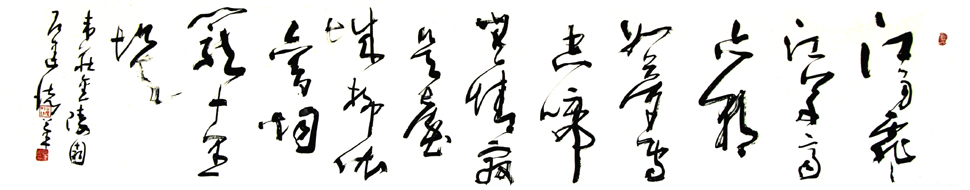 江雨霏霏
江草齐
六朝
如梦鸟
空啼
無情最
是臺
城柳依
舊烟
笼十里
堤
韦莊金陵图